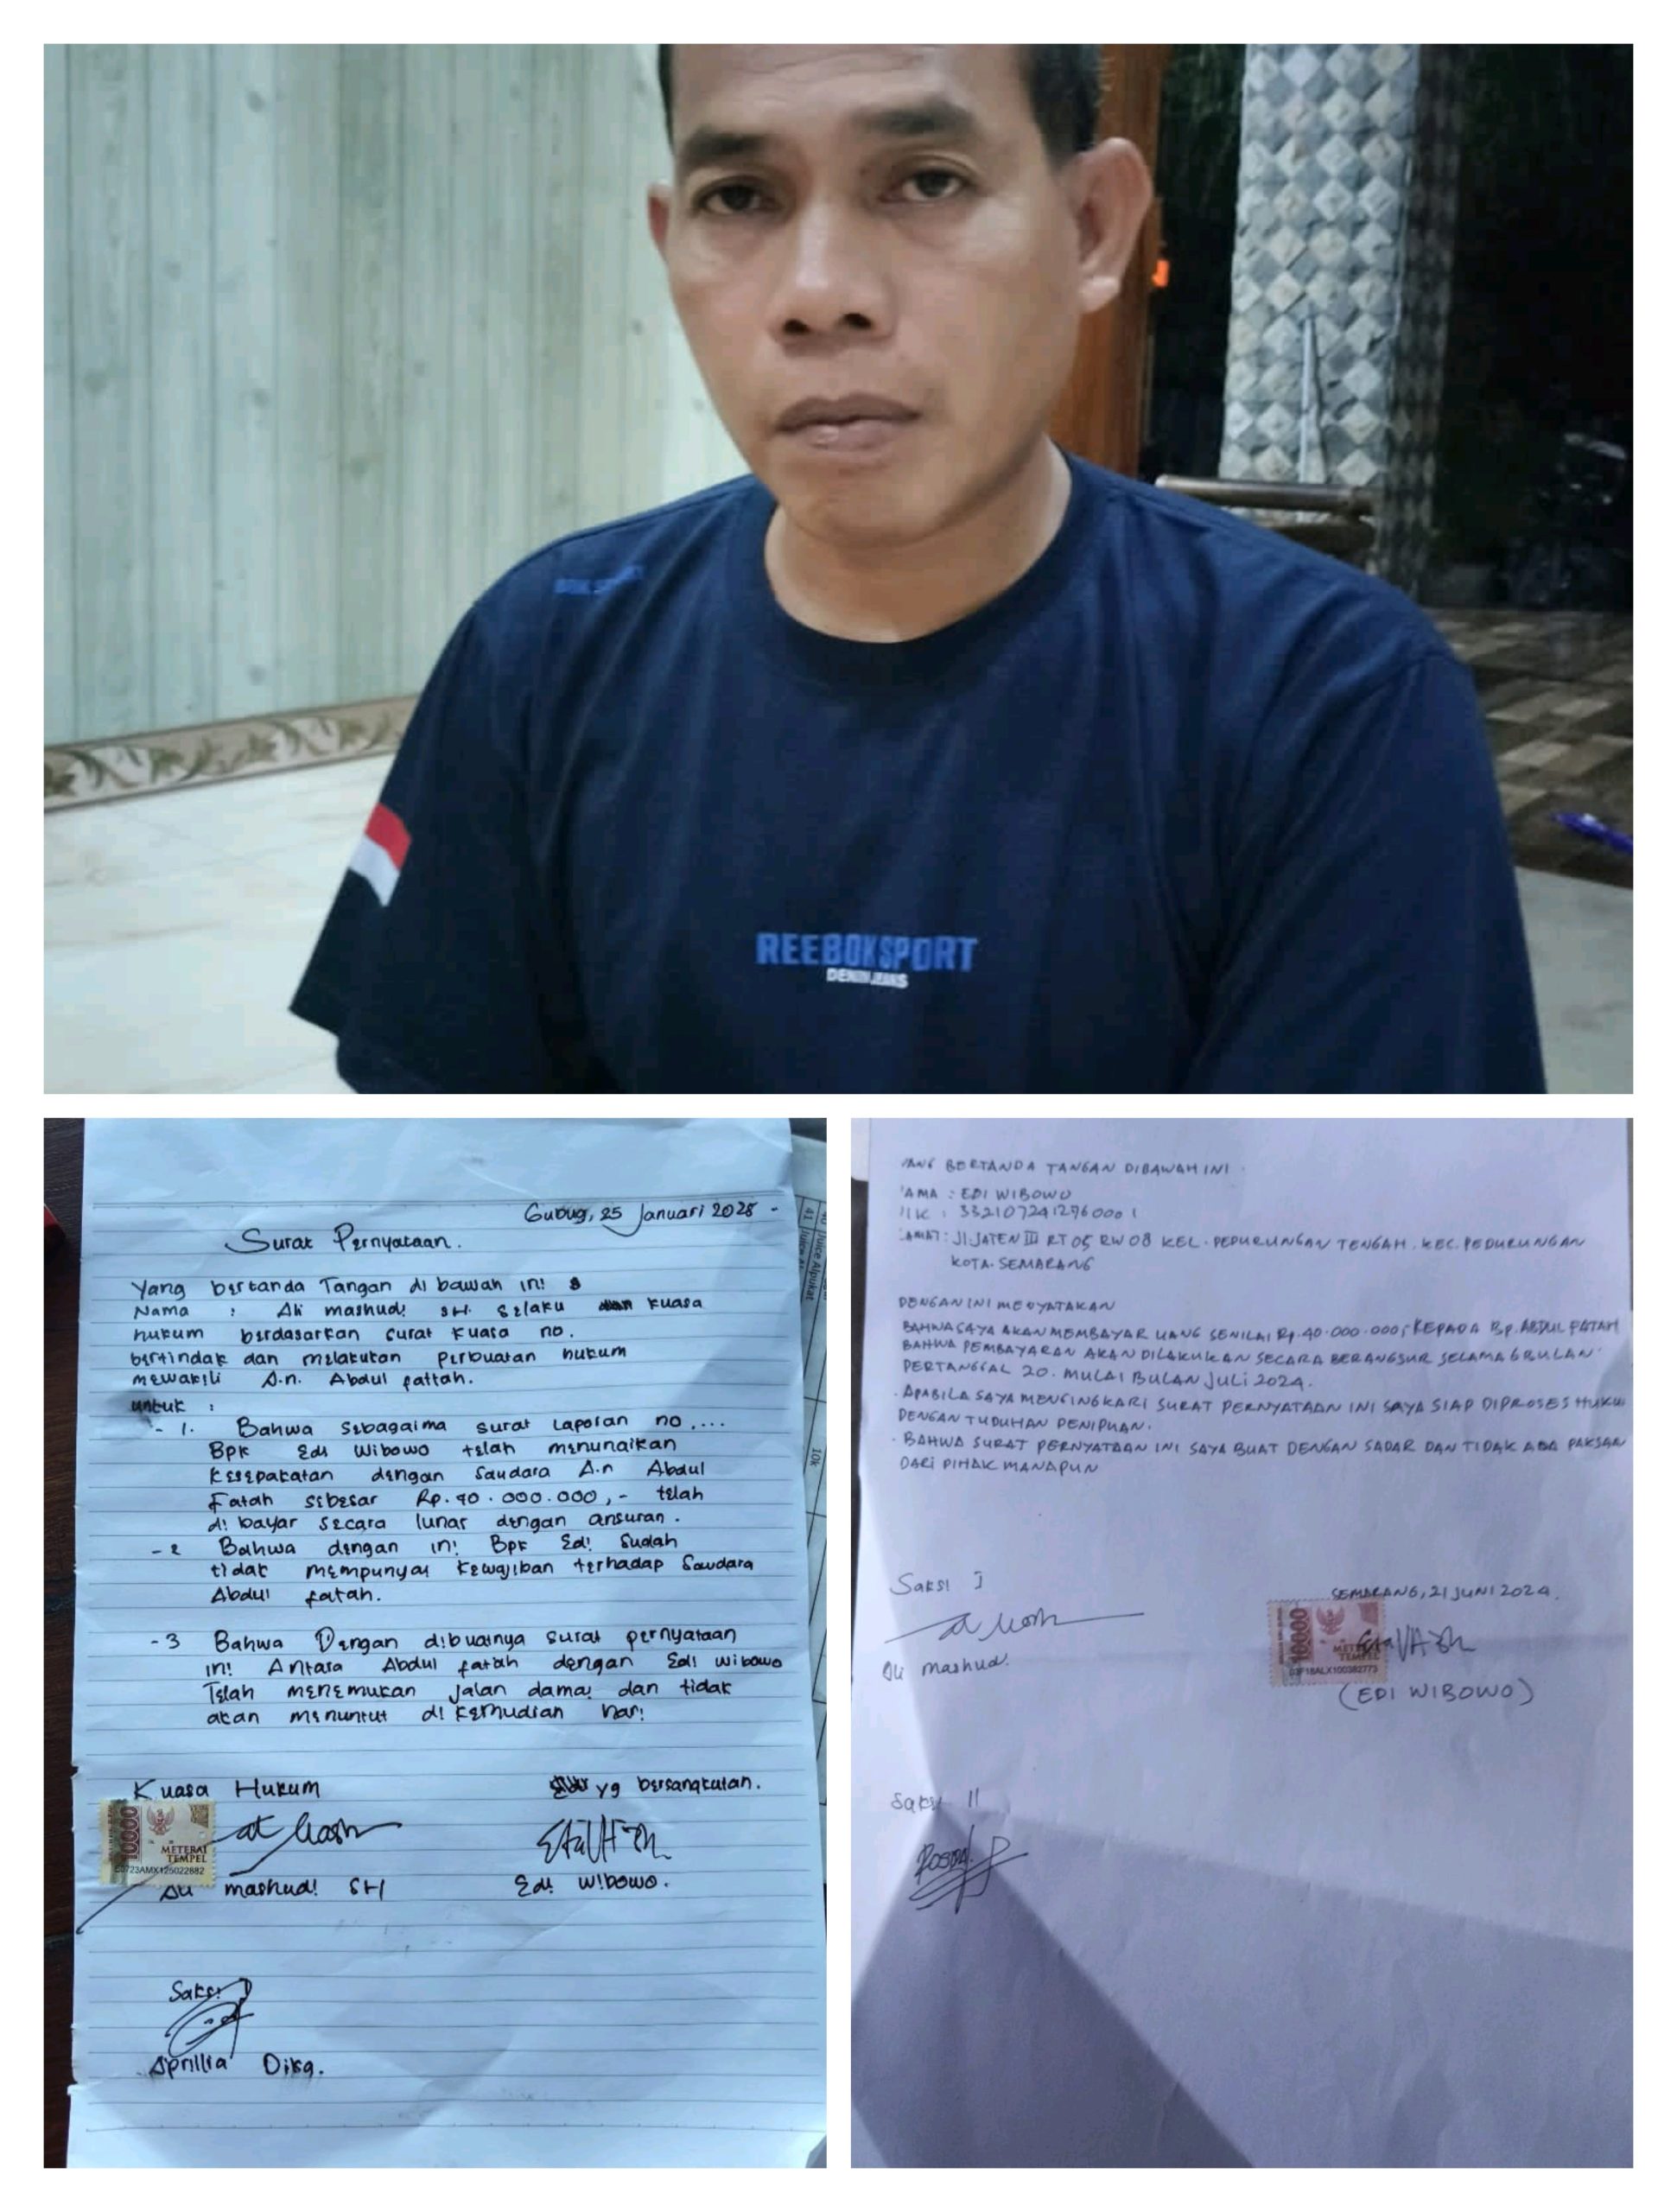 REEBOKSPORT
DENIM JEANS
Gubug, 25 Januari 2025 -
Surat Pernyataan.
Yang bertanda Tangan di bawah ini
Nama : Ali mashudi SH. Selaku kuasa
hukum berdasarkan surat kuasa no.
bertindak dan melakukan perbuatan hukum
mewakili A.n. Abdul fattah.
untuk :
- 1. Bahwa sebagaima surat laporan no....
Bpk Edi Wibowo telah menunaikan
Kesepakatan dengan Saudara A.n Abdul
Fatah sebesar Rp. 40.000.000,- telah
di bayar secara lunas dengan ansuran.
- 2 Bahwa dengan ini Bpk Edi Sudah
tidak mempunyai kewajiban terhadap Saudara
Abdul fatah.
- 3 Bahwa Dengan dibuatnya surat pernyataan
ini Antara Abdul fatah dengan Edi wibowo
Telah menemukan jalan damai dan tidak
akan menuntut di kemudian hari
Kuasa Hukum yg bersangkutan.
10000
METERAI
TEMPEL
Ali mashudi SH Edi wibowo.
Saksi
Aprillia Dika.
41 Juice Alpukat
10k
YANG BERTANDA TANGAN DIBAWAH INI
AMA : EDI WIBOWO
IK : 3321072412760001
AMAT : Jl. JATEN III RT 05 RW 08 KEL. PEDURUNGAN TENGAH. KEC. PEDURUNGAN
KOTA. SEMARANG
DENGAN INI MENYATAKAN
BAHWA SAYA AKAN MEMBAYAR UANG SENILAI Rp. 40.000.000,- KEPADA Bp. ABDUL FATAH
BAHWA PEMBAYARAN AKAN DILAKUKAN SECARA BERANGSUR SELAMA 6 BULAN
PERTANGGAL 20. MULAI BULAN JULI 2024.
. APABILA SAYA MENGINGKARI SURAT PERNYATAAN INI SAYA SIAP DIPROSES HUKU
DENGAN TUDUHAN PENIPUAN.
. BAHWA SURAT PERNYATAAN INI SAYA BUAT DENGAN SADAR DAN TIDAK ADA PAKSAAN
DARI PIHAK MANAPUN
Saksi I
SEMARANG, 21 JUNI 2024.
10000
METERAI
TEMPEL
Ali mashudi
(EDI WIBOWO)
Saksi II